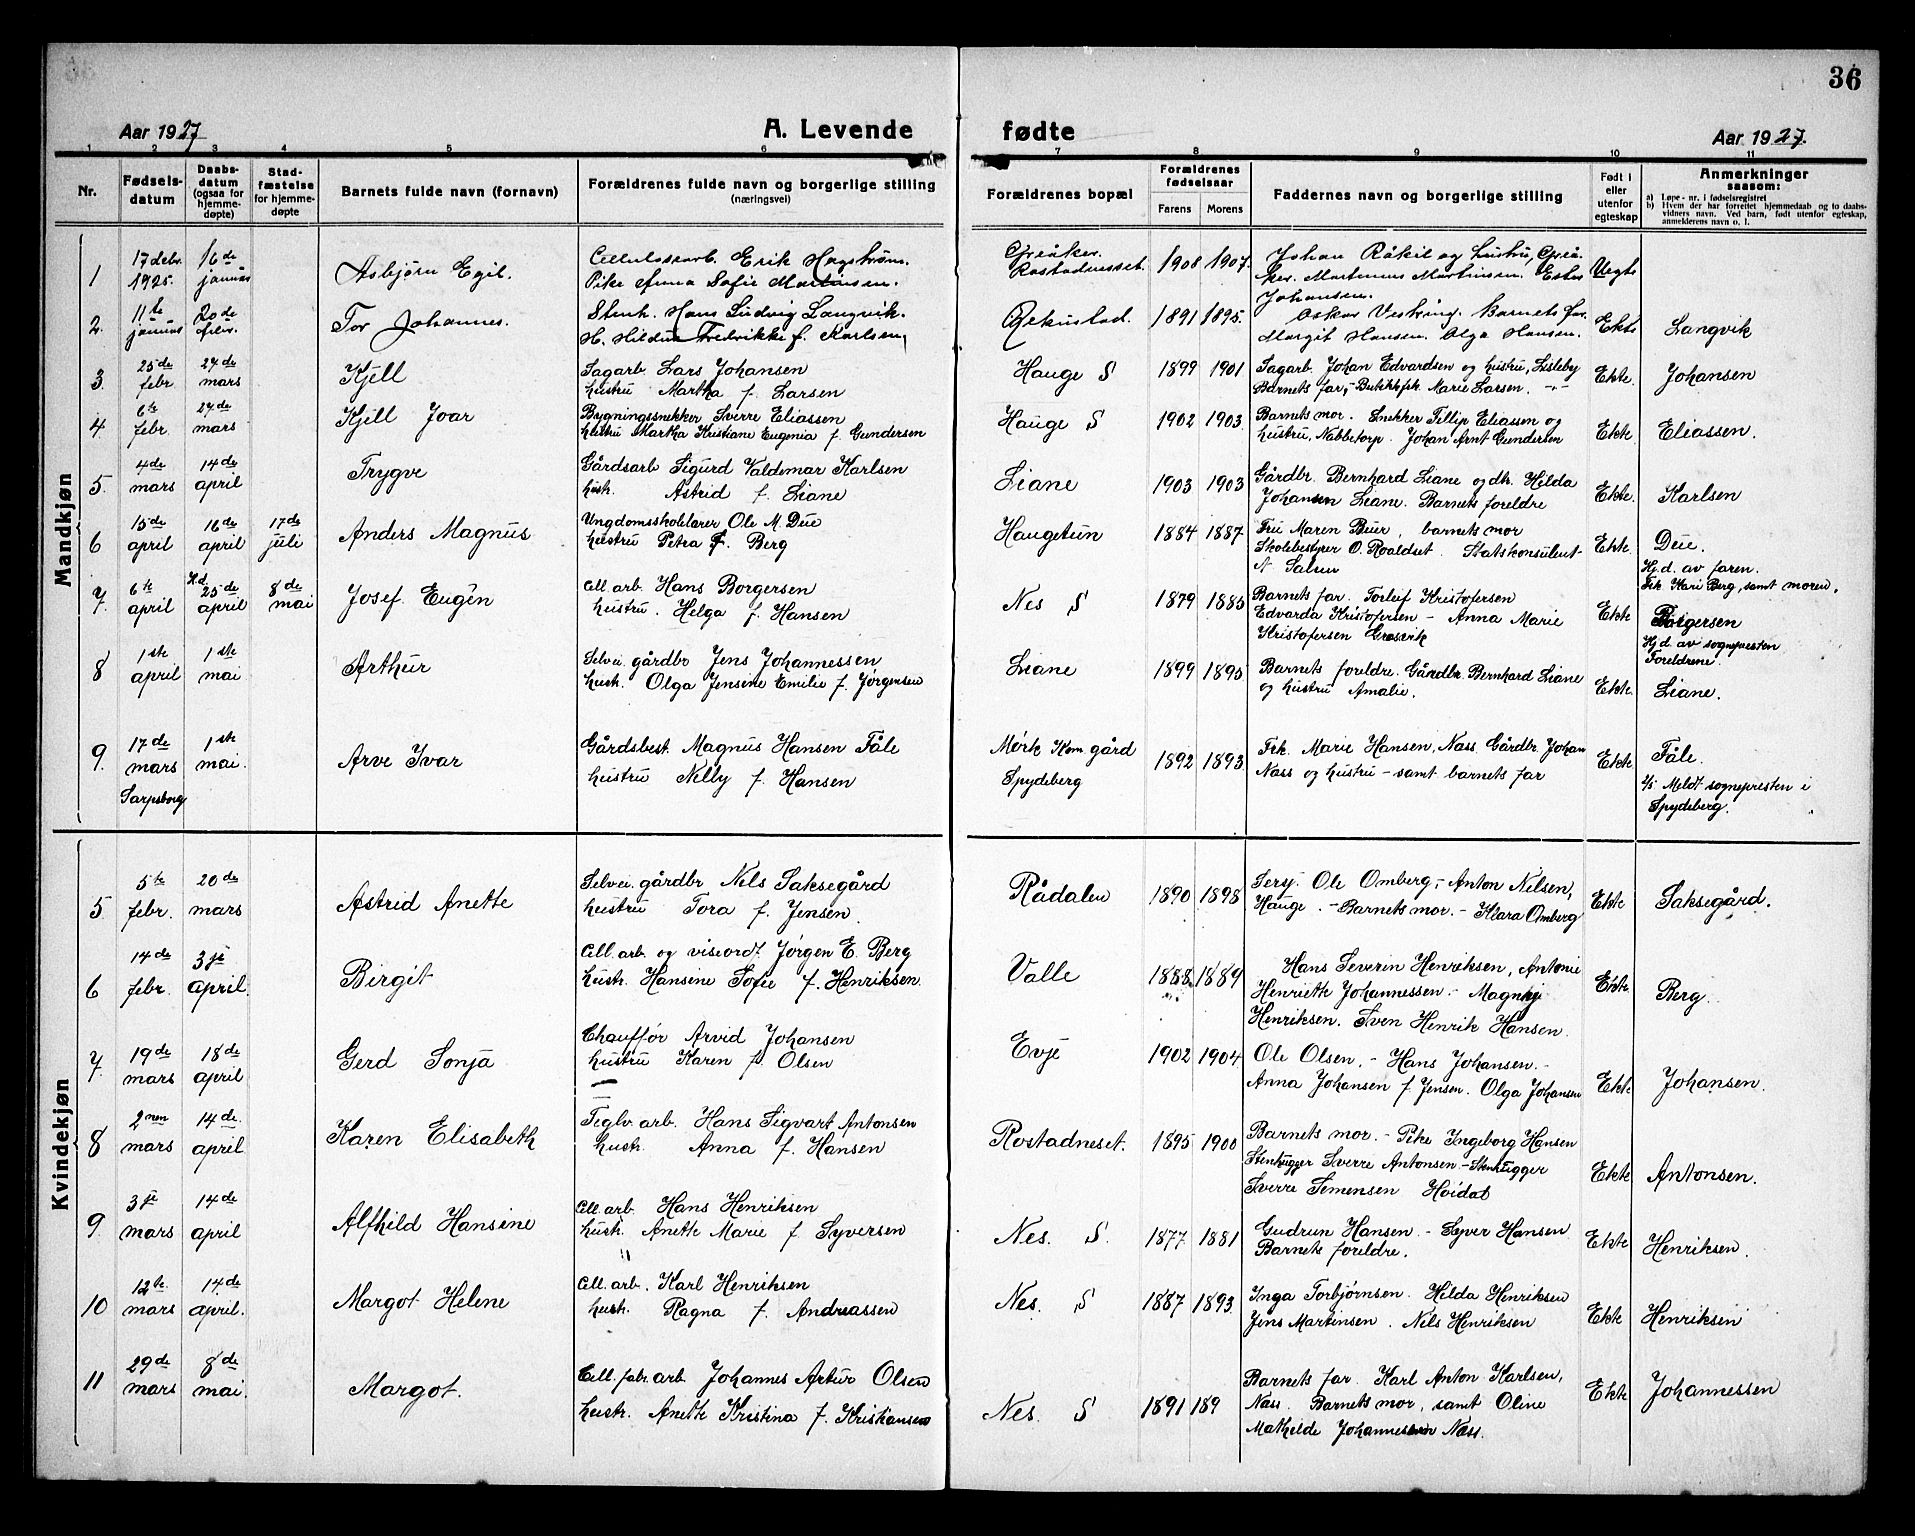 36
Aar 1927
A. Levende
fødte
Aar 1927.
1 2 3 4 5 6 7 8 9 10 11
Nr.
Fødsels-
datum
Daabs-
datum
(ogsaa for
hjemme-
døpte)
Stad-
fæstelse
for hjemme-
døpte
Barnets fulde navn (fornavn)
Forældrenes fulde navn og borgerlige stilling
(næringsvei)
Forældrenes bopæl
Forældrenes
fødselsaar
Farens
Morens
Faddernes navn og borgerlige stilling
Født i
eller
utenfor
egteskap
Anmerkninger
saasom:
a) Løpe-nr. i fødselsregistret
b) Hvem der har forrettet hjemmedaab og to daabs-
vidners navn. Ved barn, født utenfor egteskap,
anmelderens navn o. l.
Mandkjøn
1 17 debr. 1925. 16de januar Asbjørn Egil.
Cellulosearb. Erik Hagstrøm.
Pike Anna Sofie Martinsen.
Greåker. Rostadneset. 1908 1907.
Johan Råkil og hustru, Greå-
ker. Martinius Martinsen. Ester
Johansen.
Uegte
2. 11te januar 20de febr. Tor Johannes.
Stenh. Hans Ludvig Langvik.
H. Hilda Fredrikke f. Karlsen,
Rekustad. 1891 1895.
Oskar Vestring. Barnets far.
Margit Hansen. Olga Hansen.
Ekte Langvik
3. 25de febr 27de mars Kjell
Sagarb. Lars Johansen
hustru Martha f. Larsen
Hauge S 1899 1901
Sagarb. Johan Edvardsen og hustru, Lisleby
Barnets far,- Butikkfrk. Marie Larsen. -"-
Ekte. Johansen
4 6te febr. 27de mars Kjell Joar
Bygningssnekker Sverre Eliassen
hustru Martha Kristiane Eugenia f. Gundersen
Hauge S 1902 1903
Barnets mor. Snekker Fillip Eliassen og
hustru, Nabbetorp. Johan Arnt Gundersen
Ekte. Eliassen.
5. 4de mars 14de april Trygve
Gårdsarb Sigurd Valdemar Karlsen
hustr. Astrid f. Liane
Liane 1903 1903
Gårdbr. Bernhard Liane og dtr. Hilda
Johansen Liane. Barnets foreldre
Ekte. Karlsen
6 15de april 16de april 17de juli Anders Magnus
Ungdomsskolelærer Ole M. Due
hustru Petra f. Berg
Haugetun 1884 1887
Fru Maren Buer, barnets mor
Skolebestyrer O. Roaldset. Statskonsulent
N. Salun
Ekte. Due.
Hj.d. av faren.
Frk. Kari Berg, samt moren.
7. 6te april H.d. 25de april 8de mai Josef Eugén
Cell arb. Hans Borgersen
hustru. Helga f. Hansen
Nes S 1879 1885
Barnets far. Torleif Kristofersen
Edvarda Kristofersen - Anna Marie
Kristofersen Græsvik
Ekte Borgersen
Hj.d. av sognepresten
Foreldrene.
8 1ste april 1ste mai Arthur
Selvei. gårdbr Jens Johannessen
hust. Olga Jensine Emilie f. Jørgensen
Liane 1899 1895
Barnets foreldre. Gårdbr. Bernhard Liane
og hustru Amalie.
Ekte. Liane.
9. 17de mars Sarpsborg 1ste mai. Arve Ivar
Gårdsbest. Magnus Hansen Fåle
hustru Nelly f. Hansen
Mørk Kom. gård
Spydeberg 1892 1893
Frk. Marie Hansen, Nass. Gårdbr. Johan
Nass og hustru - samt barnets far
Ekte Fåle.
2/5. Meldt sognepresten i
Spydeberg.
Kvindekjøn
5 5te febr. 20de mars Astrid Anette
Selvei. gårdbr Nels Saksegård
hustru Tora f. Jensen.
Rådalen 1890 1898
Tersj. Ole Omberg,- Anton Nilsen,
Hauge. - Barnets mor. - Klara Omberg
Ekte Saksegård.
6 14de febr. 3je april. Birgit
Cell. arb. og viseordf. Jørgen E. Berg
hustr. Hansine Sofie f. Henriksen.
Valle 1888. 1889
Hans Severin Henriksen, Antonie
Henriette Johannessen. - Magnhj
Henriksen. Sven Henrik Hansen.
Ekte Berg.
7. 19de mars 18de april Gerd Sonja
Chauffør Arvid Johansen
hustru Karen f. Olsen
Evje 1902 1904
Ole Olsen. - Hans Johansen. -
Anna Johansen f. Jensen. Olga Johansen
Ekte Johansen.
8 2nen mars 14de. april Karen Elisabeth
Teglv. arb. Hans Sigvart Antonsen
hustr. Anna f. Hansen
Rostadneset. 1895 1900
Barnets mor. - Pike Ingeborg Hansen
Stenhugger Sverre Antonsen - Stenhugger
Sverre Simensen Hoidal
Ekte Antonsen.
9 3je mars 14de april Alfhild Hansine
Cell. arb. Hans Henriksen
hustr. Anette Marie f. Syversen
Nes. S. 1877. 1881
Gudrun Hansen - Syver Hansen
Barnets foreldre.
Ekte Henriksen.
10 12te. mars 14de april. Margot Helene
Cell. arb. Karl Henriksen
hustr. Ragna f. Andreassen
Nes. S 1887 1893
Inga Torbjørnsen. Hilda Henriksen
Jens Martinsen. Nils Henriksen
Ekte Henriksen
11 29de mars 8de mai. Margot.
Cell. fabr. arb. Johannes Artur Olsen
hustr. Anette Kristina f. Kristiansen
Nes. S 1891 189
Barnets far. Karl Anton Karlsen,
Næss. Barnets mor, samt Oline
Mathilde Johannessen Næss.
Ekte Johannessen